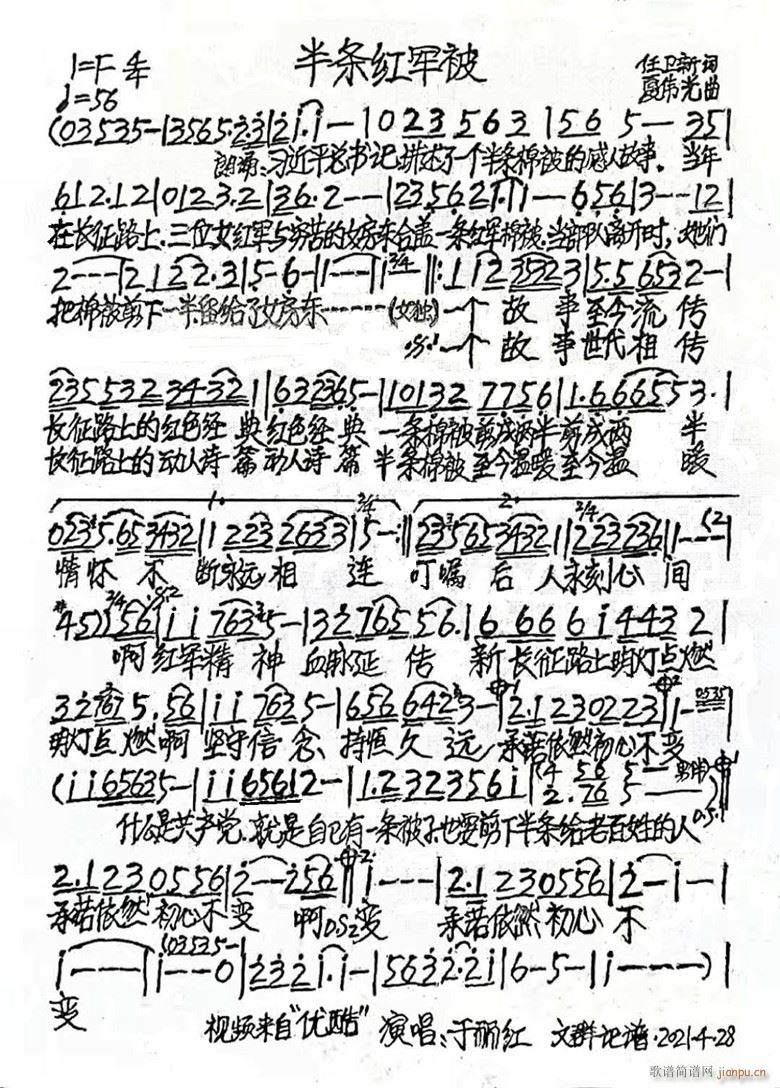 半条红军被
1=F 4/4
♩=56
任卫新 词
夏伟光 曲
(03535-|3565·2̇3̇|2̇1̇·1̇--|023563|1565--35|
朗诵:习近平总书记讲述了一个半条棉被的感人故事。当年
612·12|0123·2|36·2--|23562|1·1--656|3--12|
在长征路上,三位女红军与穷苦的女房东合盖一条红军棉被,当部队离开时,她们
2---|2122·3|5-6-|1---|1 3/4 -‖:1123523|5·56532-|
把棉被剪下一半留给了女房东………(女独)一个故事至今流传
D.S.一个故事世代相传
235532 34·321|632365-|10132 7756|1·6665553·|
长征路上的红色经典红色经典 一条棉被剪成两半剪成两半
长征路上的动人诗篇动人诗篇 半条棉被至今温暖至今温暖
1. 2/4 2.
0235·653432|12232633|5-:‖235653432|2/4 223236|1--52|
情怀不断永远相连 叮嘱后人永刻心间
#45)2/4 56|1̇1̇7635-|32̇76556·|66661̇4432|
啊红军精神血脉延传 新长征路上明灯点燃
32̇7675·56|1̇1̇7635-|6566423-|2·1230223|1-0535|
明灯点燃啊 坚守信念 持恒久远 承诺依然初心不变
(1̇1̇65635-|1̇1̇65612-|1·2323561̇|(4 56 5-- 男独)
2·76 5--
D.S.1
什么是共产党,就是自己有一条被子也要剪下半条给老百姓的人
2·1230556|2̇--2̇56‖1̇---|2·1230556|2̇-1̇-|
承诺依然初心不变 啊D.S.2变 承诺依然初心不
1̇---|(03535-
1̇--0|2̇3̇2̇1̇·1̇-|563̇2̇·2̇1̇|6-5-|1̇----)|
变
视频来自“优酷” 演唱:于丽红 文群记谱·2021·4·28
歌谱简谱网
jianpu.cn